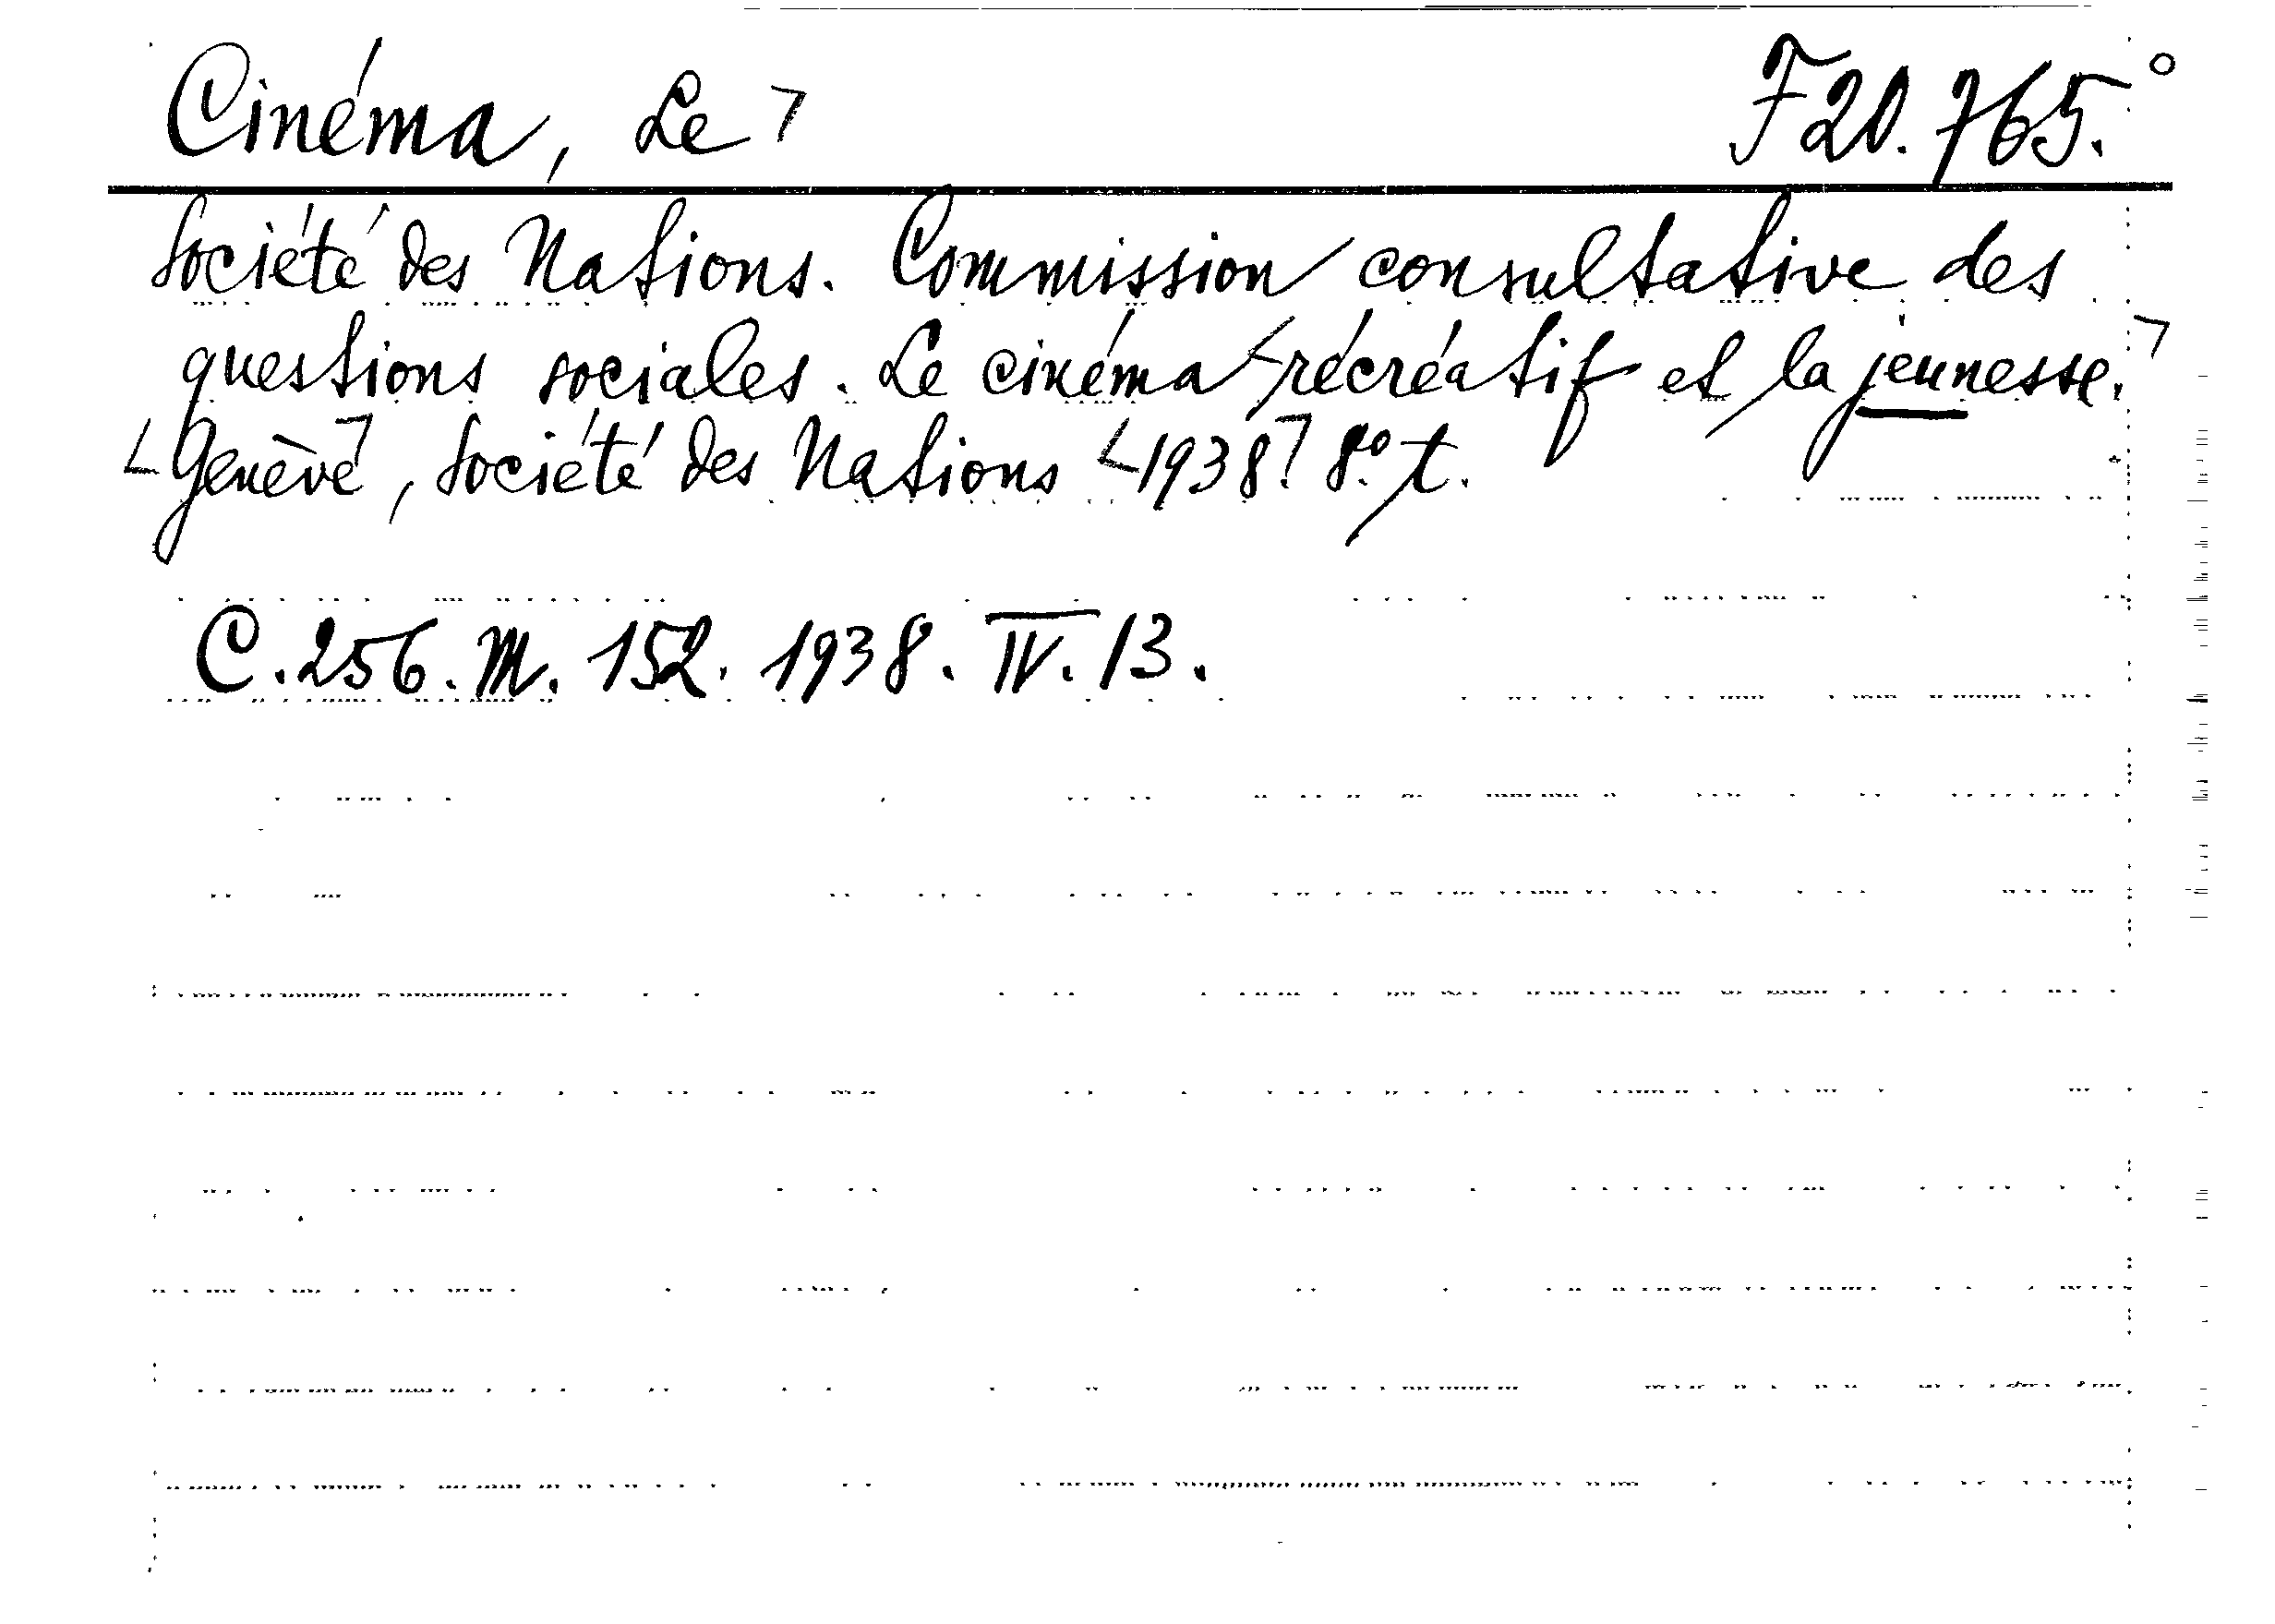 Cinéma, Le ┐ F 20.765.°
Société des Nations. Commission consultative des
questions sociales. Le cinéma └récréatif et la jeunesse.┐
└Genève┐, Société des Nations └1938┐. 8.° t.
C.256.M.152.1938.IV.13.